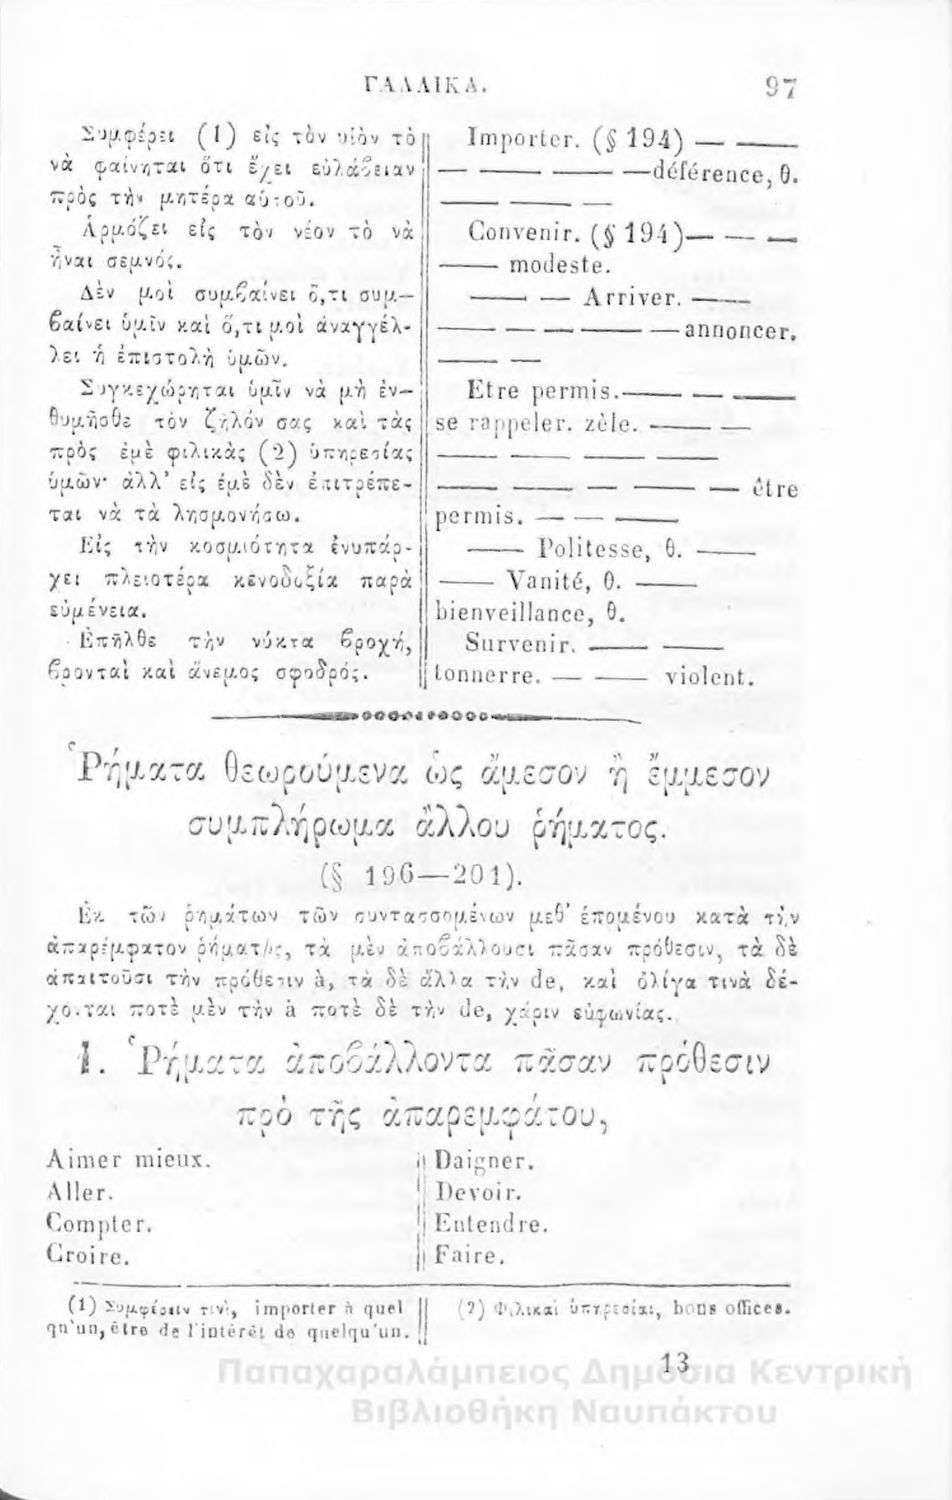 ΓΑΛΛΙΚΑ.
97
Συμφέρει (1) εἰς τὸν υἱὸν τὸ
νὰ φαίνηται ὅτι ἔχει εὐλάβειαν
πρὸς τὴν μητέρα αὑτοῦ.
Ἁρμόζει εἰς τὸν νέον τὸ νὰ
ᾖναι σεμνός.
Δὲν μοὶ συμβαίνει ὅ,τι συμ—
βαίνει ὑμῖν καὶ ὅ,τι μοὶ ἀναγγέλ-
λει ἡ ἐπιστολὴ ὑμῶν.
Συγκεχώρηται ὑμῖν νὰ μὴ ἐν—
θυμῆσθε τὸν ζῆλόν σας καὶ τὰς
πρὸς ἐμὲ φιλικὰς (2) ὑπηρεσίας
ὑμῶν· ἀλλ’ εἰς ἐμὲ δὲν ἐπιτρέπε-
ται νὰ τὰ λησμονήσω.
Εἰς τὴν κοσμιότητα ἐνυπάρ-
χει πλειοτέρα κενοδοξία παρὰ
εὐμένεια.
Ἐπῆλθε τὴν νύκτα βροχή,
βρονταὶ καὶ ἄνεμος σφοδρός.
Importer. (§ 194) — ——
— —— — ——déférence, θ.
—— —— —
Convenir. (§ 194)— — —
—— modeste.
—— — Arriver. ——
—— — — ——annoncer.
—— —
Etre permis.—— — ——
se rappeler. zèle. —— —
—— — —— ——
—— —— — —— — être
permis. — — ——
—— Politesse, θ. ——
—— Vanité, θ. ——
bienveillance, θ.
Survenir. —— ——
tonnerre. — — —— violent.
Ῥήματα θεωρούμενα ὡς ἄμεσον ἢ ἔμμεσον
συμπλήρωμα ἄλλου ῥήματος.
(§ 196—201).
Ἐκ τῶν ῥημάτων τῶν συντασσομένων μεθ’ ἑπομένου κατὰ τὴν
ἀπαρέμφατον ῥήματος, τὰ μὲν ἀποβάλλουσι πᾶσαν πρόθεσιν, τὰ δὲ
ἀπαιτοῦσι τὴν πρόθεσιν à, τὰ δὲ ἄλλα τὴν de, καὶ ὀλίγα τινὰ δέ-
χονται ποτὲ μὲν τὴν à ποτὲ δὲ τὴν de, χάριν εὐφωνίας.
1. Ῥήματα ἀποβάλλοντα πᾶσαν πρόθεσιν
πρὸ τῆς ἀπαρεμφάτου,
Aimer mieux.
Aller.
Compter.
Croire.
Daigner.
Devoir.
Entendre.
Faire.
(1) Συμφέρειν τινὶ, importer à quel
qu'un, être de l'intérêt de quelqu'un.
(2) Φιλικαὶ ὑπηρεσίαι, bons offices.
13
Παπαχαραλάμπειος Δημόσια Κεντρική
Βιβλιοθήκη Ναυπάκτου